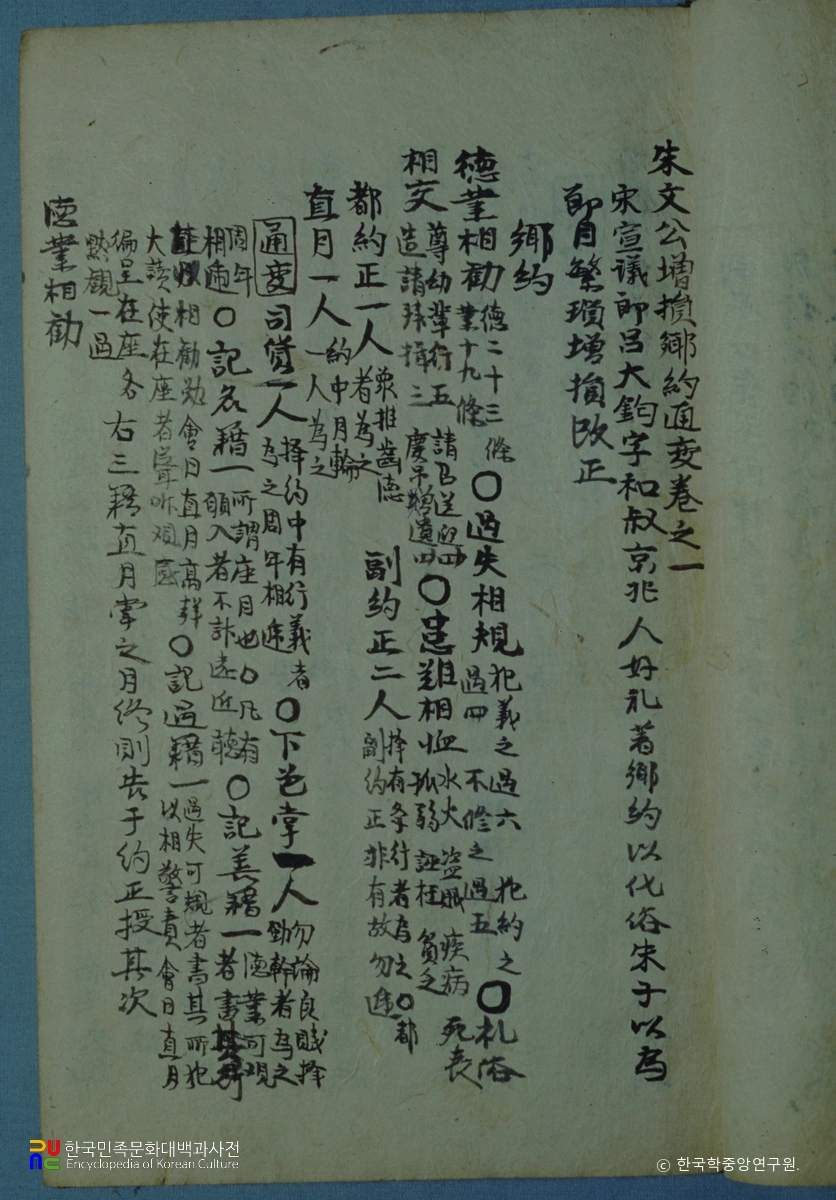 朱文公增損鄉約通変卷之一
宋宣議郎呂大鈞字和叔京兆人好礼著鄉約以化俗朱子以爲
節目繁瑣增損改正
鄉約
德業相勸 德二十三條 業十九條 〇過失相規 犯義之過六 犯約之過四 不修之過五 〇礼俗
相交 尊幼輩行五 造請拜揖三 請召送迎四 慶吊贈遺四 〇患難相恤 水火 盜賊 疾病 死喪 孤弱 誣枉 貧乏
都約正一人 衆推齒德者爲之 副約正二人 擇有条行者爲之〇都副約正非有故勿遞
直月一人 約中月輪一人爲之
通変 司貨一人 擇約中有行義者爲之周年相遞 〇下色掌一人 勿論良賤擇勤幹者爲之
周年相遞 〇記名籍一 所謂座目也〇凡有願入者不計遠近聽 〇記善籍一 德業可規者書其所
相勸勉會日直月高聲 〇記過籍一 過失可規者書其所犯以相警責會日直月
大讀使在座者聳
徧呈在座各默觀一過 右三籍直月掌之月終則告于約正授其次
德業相勸
한국민족문화대백과사전
Encyclopedia of Korean Culture
© 한국학중앙연구원.